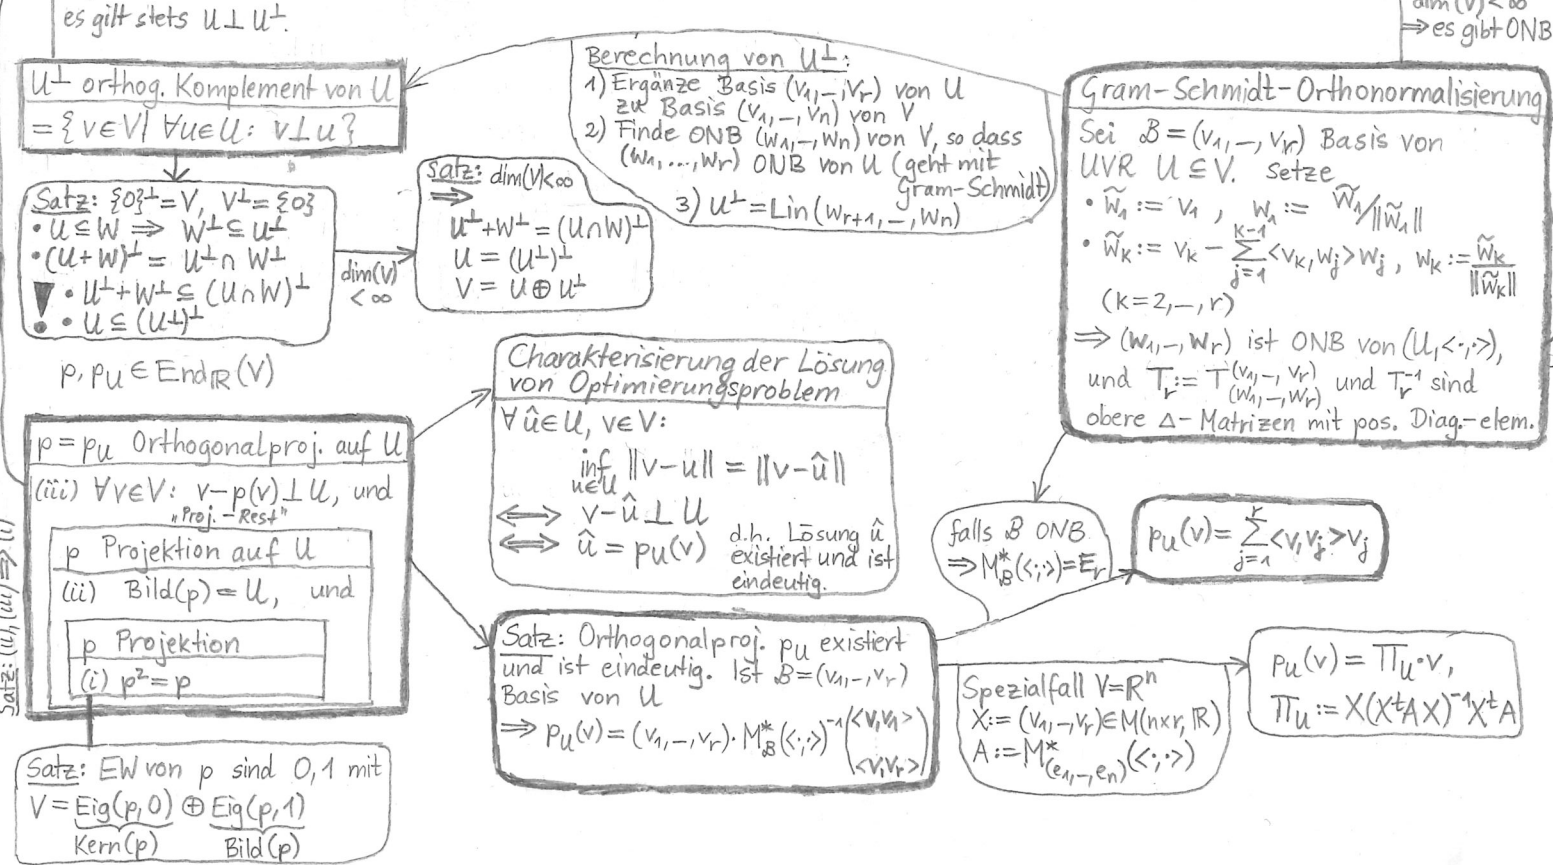 es gilt stets U ⊥ U^⊥.
dim(V) < ∞
⇒ es gibt ONB
U^⊥ orthog. Komplement von U
= {v∈V | ∀u∈U: v⊥u}
Berechnung von U^⊥:
1) Ergänze Basis (v_1,–,v_r) von U
zu Basis (v_1,–,v_n) von V
2) Finde ONB (w_1,–,w_n) von V, so dass
(w_1,...,w_r) ONB von U (geht mit
Gram-Schmidt)
3) U^⊥ = Lin(w_{r+1},–,w_n)
Gram-Schmidt-Orthonormalisierung
Sei ℬ = (v_1,–,v_r) Basis von
UVR U ⊆ V. Setze
• w̃_1 := v_1 , w_1 := w̃_1/‖w̃_1‖
• w̃_k := v_k − ∑_{j=1}^{k-1} <v_k,w_j>w_j , w_k := w̃_k/‖w̃_k‖
(k=2,–,r)
⇒ (w_1,–,w_r) ist ONB von (U,<·,·>),
und T_r := T^{(v_1,–,v_r)}_{(w_1,–,w_r)} und T_r^{-1} sind
obere Δ-Matrizen mit pos. Diag.-elem.
Satz: {0}^⊥ = V, V^⊥ = {0}
• U ⊆ W ⇒ W^⊥ ⊆ U^⊥
• (U+W)^⊥ = U^⊥ ∩ W^⊥
! • U^⊥+W^⊥ ⊆ (U∩W)^⊥
• U ⊆ (U^⊥)^⊥
dim(V)
< ∞
Satz: dim(V)<∞
⇒
U^⊥+W^⊥ = (U∩W)^⊥
U = (U^⊥)^⊥
V = U ⊕ U^⊥
p, p_U ∈ End_ℝ(V)
p = p_U Orthogonalproj. auf U
(iii) ∀v∈V: v−p(v) ⊥ U, und
„Proj.-Rest"
p Projektion auf U
(ii) Bild(p) = U, und
p Projektion
(i) p² = p
Satz: (ii),(iii) ⇒ (i)
Satz: EW von p sind 0,1 mit
V = Eig(p,0) ⊕ Eig(p,1)
Kern(p) Bild(p)
Charakterisierung der Lösung
von Optimierungsproblem
∀ û∈U, v∈V:
inf_{u∈U} ‖v−u‖ = ‖v−û‖
⟺ v−û ⊥ U
⟺ û = p_U(v) d.h. Lösung û
existiert und ist
eindeutig.
Satz: Orthogonalproj. p_U existiert
und ist eindeutig. Ist ℬ=(v_1,–,v_r)
Basis von U
⇒ p_U(v) = (v_1,–,v_r)·M*_ℬ(<·,·>)^{-1} (<v,v_1> ⋮ <v,v_r>)
falls ℬ ONB
⇒ M*_ℬ(<·,·>) = E_r
p_U(v) = ∑_{j=1}^{r} <v,v_j>v_j
Spezialfall V=ℝ^n
X := (v_1,–,v_r) ∈ M(n×r,ℝ)
A := M*_{(e_1,–,e_n)}(<·,·>)
p_U(v) = Π_U·v,
Π_U := X(X^tAX)^{-1}X^tA